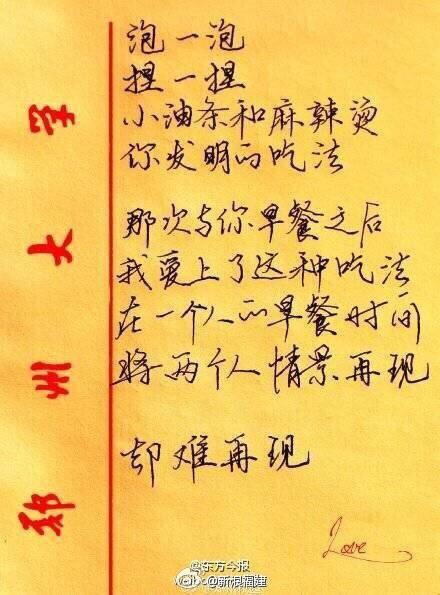 泡一泡
捏一捏
小油条和麻辣烫
你发明的吃法
那次与你早餐之后
我爱上了这种吃法
在一个人的早餐时间
将两个人情景再现
却难再现
Love
郑州大学
@东方今报
@新浪福建